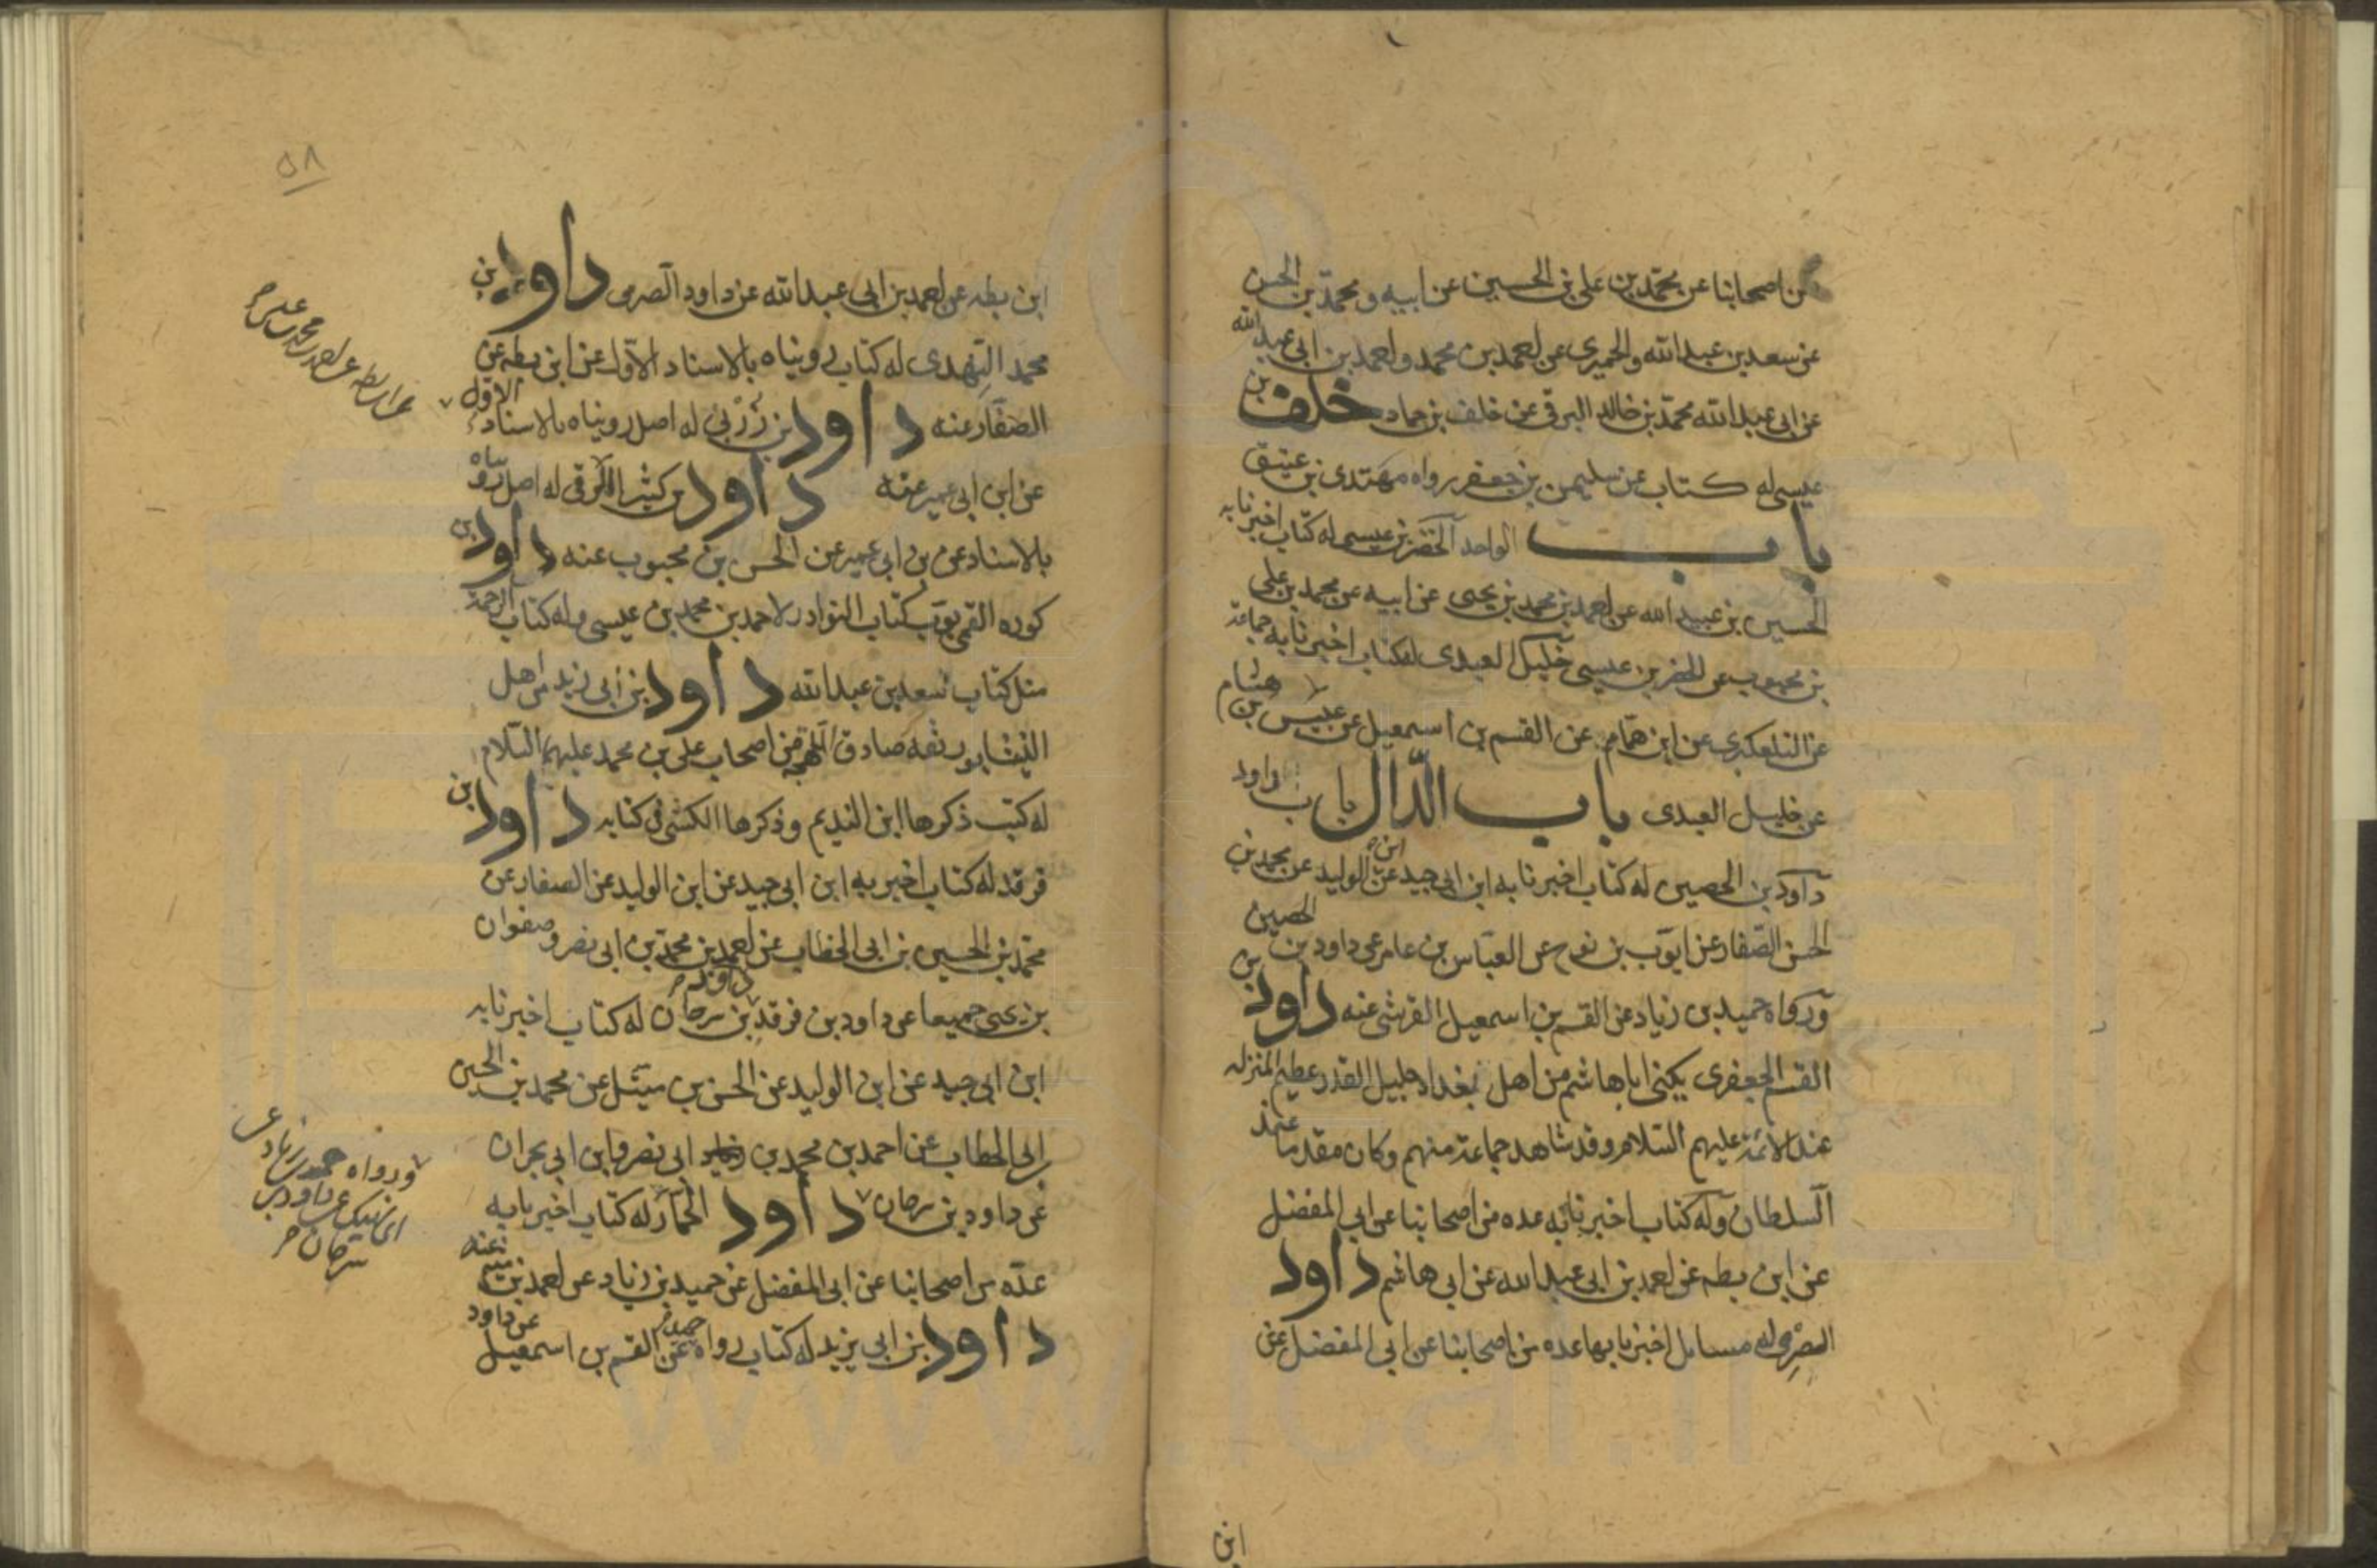 من اصحابنا عن محمد بن علي بن الحسين عن ابيه و محمد بن الحسن
عن سعد بن عبد الله والحميري عن احمد بن محمد و احمد بن ابي عبد الله
عن ابي عبد الله محمد بن خالد البرقي عن خلف بن حماد خلف بن
عيسى له كتاب عن سليمن بن جعفر رواه مهتدى بن عتيق
باب الواحد الخضر بن عيسى له كتاب اخبرنا به
الحسين بن عبيد الله عن احمد بن محمد بن يحيى عن ابيه عن محمد بن علي
بن محبوب عن الخضر بن عيسى خليل العبدى له كتاب اخبرنا به جماعة
عن التلعكبري عن ابن همام عن القسم بن اسمعيل عن عبيس بن هشام
عن خليل العبدى باب الدال باب داود
داود بن الحصين له كتاب اخبرنا به ابن ابي جيد عن ابن الوليد عن محمد بن
الحسن الصفار عن ايوب بن نوح عن العباس بن عامر عن داود بن الحصين
ورواه حميد بن زياد عن القسم بن اسمعيل القرشي عنه داود بن
القسم الجعفرى يكنى ابا هاشم من اهل بغداد جليل القدر عظيم المنزله
عند الائمة عليهم السلام وقد شاهد جماعة منهم وكان مقدما عند
السلطان وله كتاب اخبرنا به عده من اصحابنا عن ابي المفضل
عن ابن بطه عن احمد بن ابي عبد الله عن ابي هاشم داود
الصرمى له مسايل اخبرنا بها عده من اصحابنا عن ابي المفضل عن
ابن
٥٨
ابن بطه عن احمد بن ابي عبد الله عن داود الصرمى داود بن
محمد النهدى له كتاب رويناه بالاسناد الاول عن ابن بطه عن
الصفار عنه داود بن زربى له اصل رويناه بالاسناد الاول
عن ابن ابي عمير عنه داود بن كثير الرقى له اصل رويناه
بالاسناد عن بن ابي عمير عن الحسن بن محبوب عنه داود بن
كوره القمي بوب كتاب النوادر لاحمد بن محمد بن عيسى وله كتاب الرحمة
مثل كتاب سعد بن عبد الله داود بن ابي زيد من اهل
النيشابور ثقه صادق اللهجه من اصحاب علي بن محمد عليهما السلام
له كتب ذكرها ابن النديم وذكرها الكشى في كتابه داود بن
فرقد له كتاب اخبر به ابن ابي جيد عن ابن الوليد عن الصفار عن
محمد بن الحسين بن ابي الخطاب عن احمد بن محمد بن ابي نصر و صفوان
بن يحيى جميعا عن داود بن فرقد داود بن سرحان له كتاب اخبرنا به
ابن ابي جيد عن ابن الوليد عن الحسن بن متيل عن محمد بن الحسين
بن ابي الخطاب عن احمد بن محمد بن ابي نصر وابن ابي نجران
عن داود بن سرحان داود الحمار له كتاب اخبرنا به
عدة من اصحابنا عن ابي المفضل عن حميد بن زياد عن احمد بن ميثم عنه
داود بن ابي يزيد له كتاب رواه حميد عن القسم بن اسمعيل عن داود
ورواه حميد بن زياد عن
ابن نهيك عن داود بن
سرحان